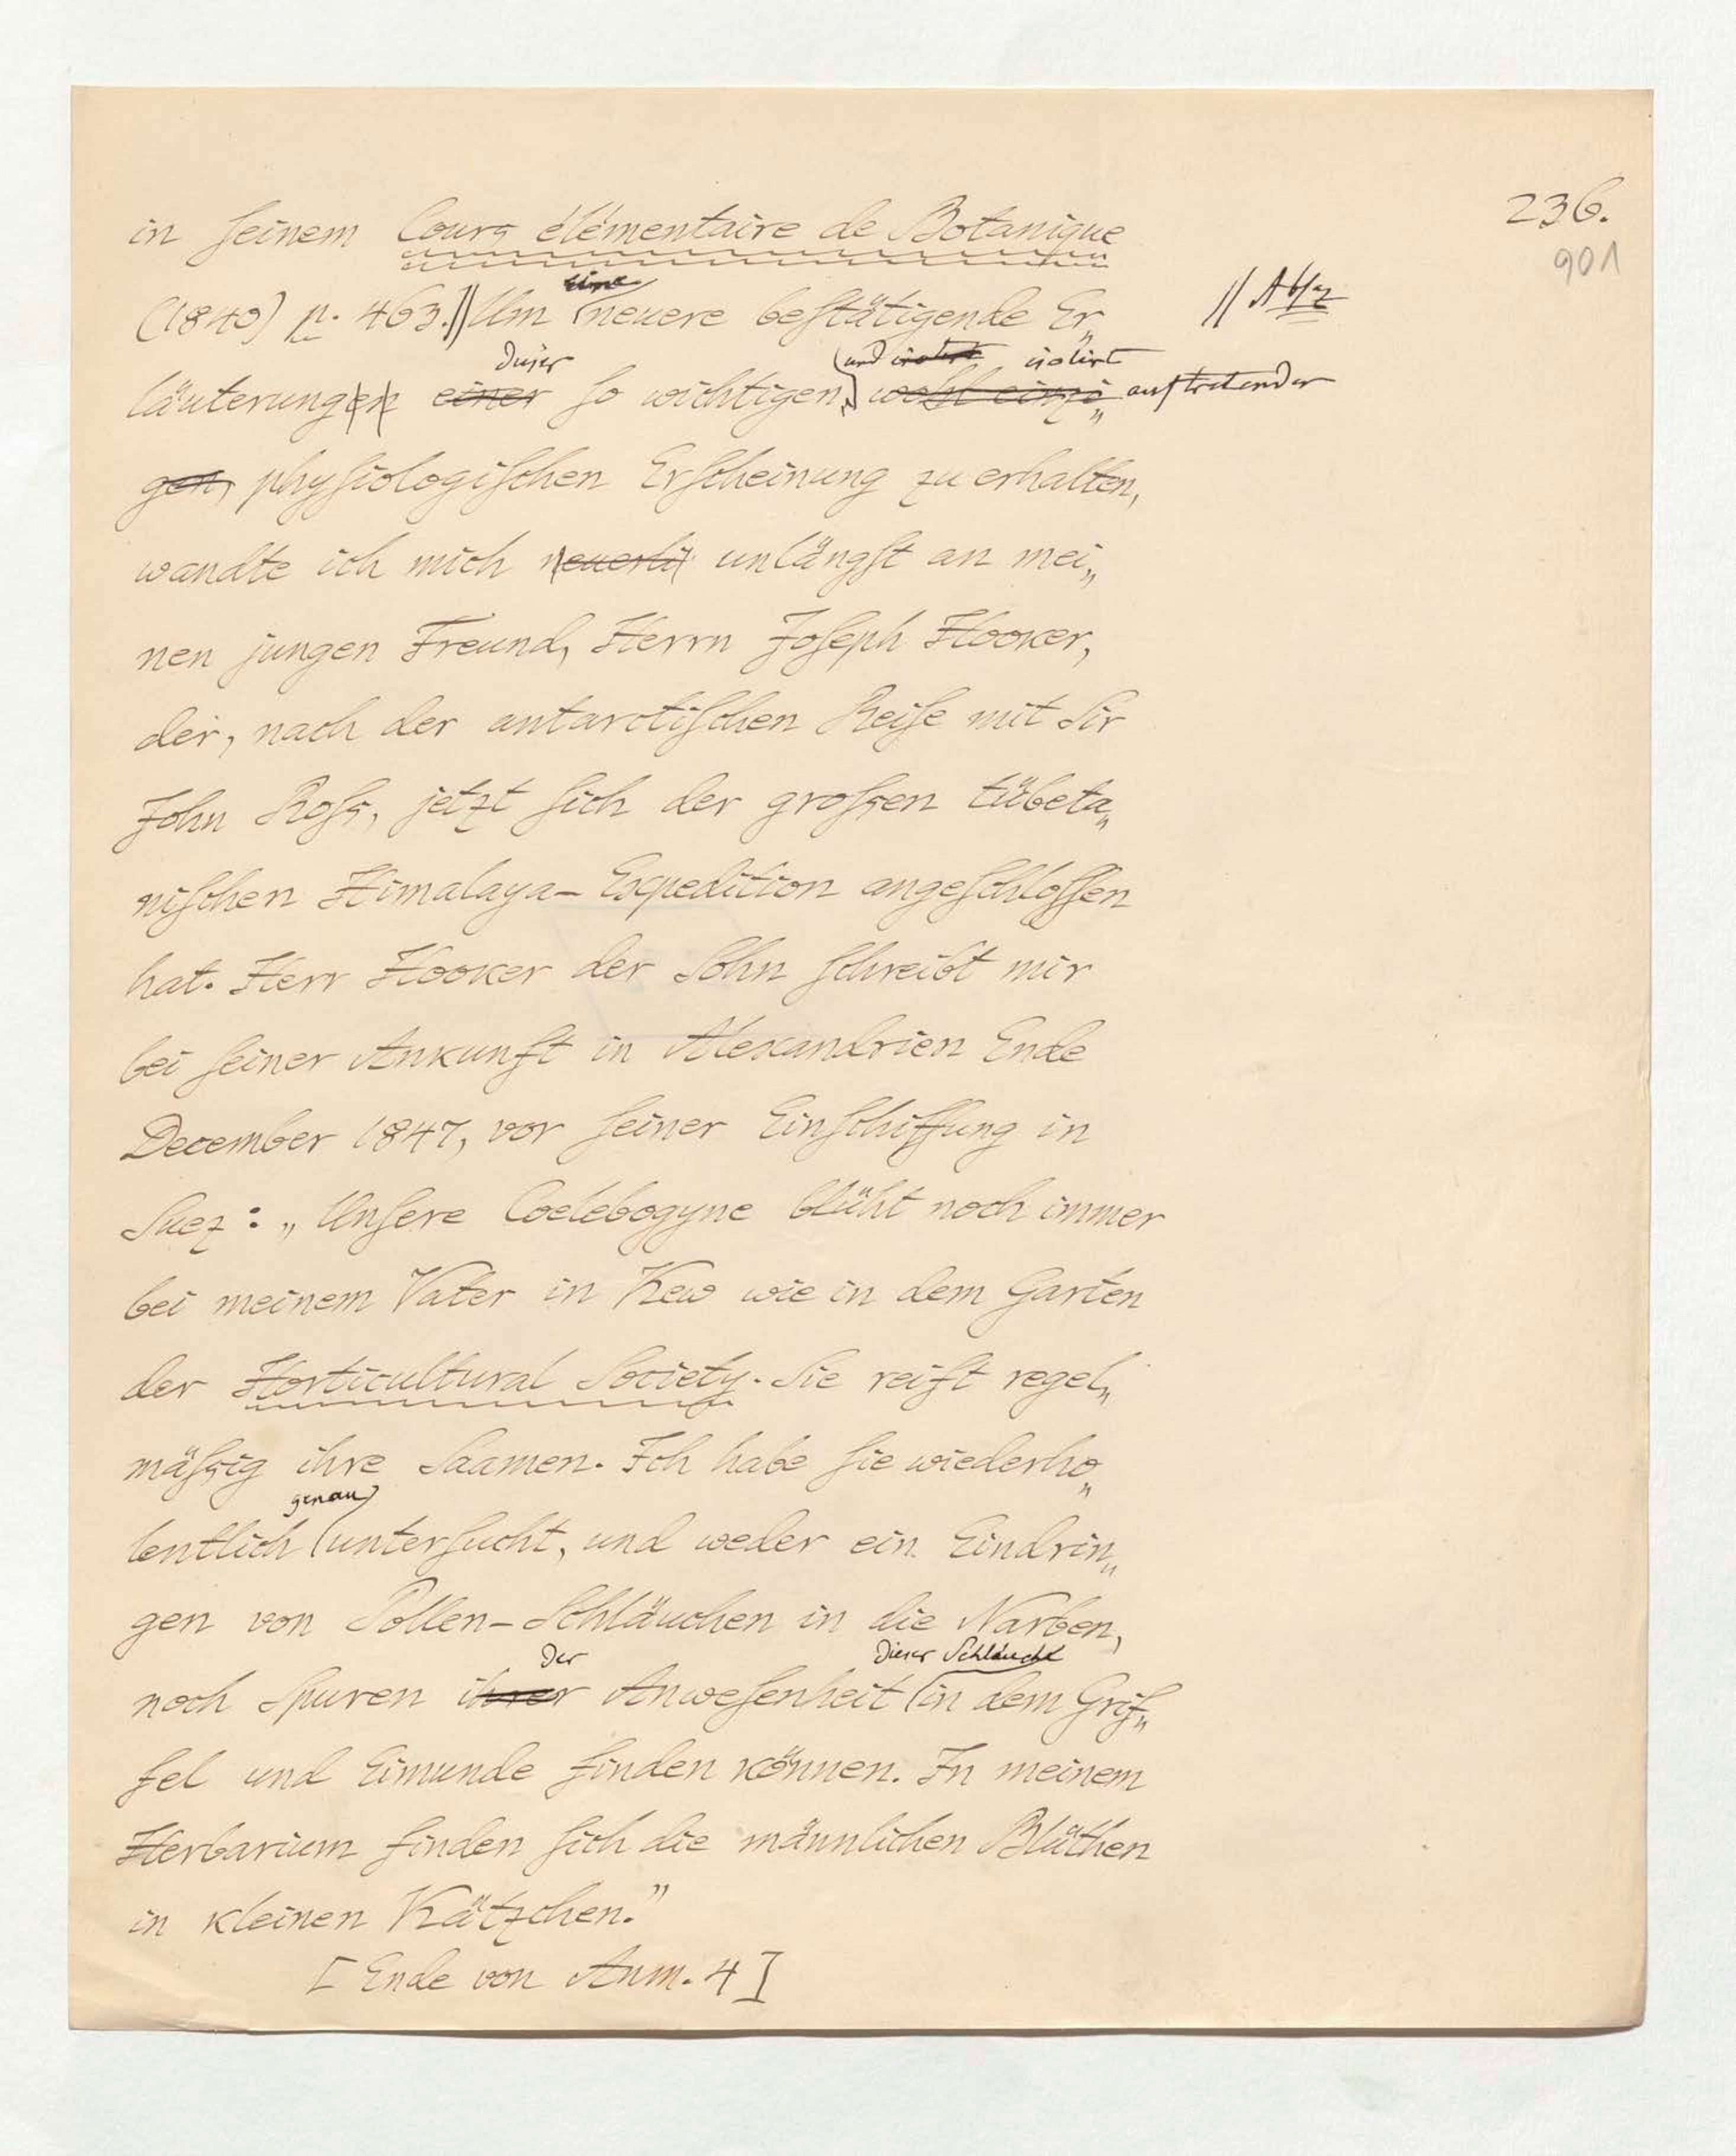 236.
901
in seinem Cours élémentaire de Botanique
eine
(1840) p. 463.// Um neuere bestätigende Er„
// Absz
dieser und isolirt isolirt
läuterungen einer so wichtigen, wohl einzi„ auftretender
gen, physiologischen Erscheinung zu erhalten,
wandte ich mich neuerli unlängst an mei„
nen jungen Freund, Herrn Joseph Hooker,
der, nach der antarctischen Reise mit Sir
John Ross, jetzt sich der großen tübeta„
nischen Himalaya-Expedition angeschlossen
hat. Herr Hooker der Sohn schreibt mir
bei seiner Ankunft in Alexandrien Ende
December 1847, vor seiner Einschiffung in
Suez: „Unsere Coelebogyne blüht noch immer
bei meinem Vater in Kew wie in dem Garten
der Horticultural Society. Sie reift regel„
mäßig ihre Saamen. Ich habe sie wiederho„
genau
lentlich untersucht, und weder ein Eindrin„
gen von Pollen-Schläuchen in die Narben,
der dieser Schläuche
noch Spuren ihrer Anwesenheit in dem Grif„
fel und Eimunde finden können. In meinem
Herbarium finden sich die männlichen Blüthen
in kleinen Kätzchen."
[Ende von Anm. 4]